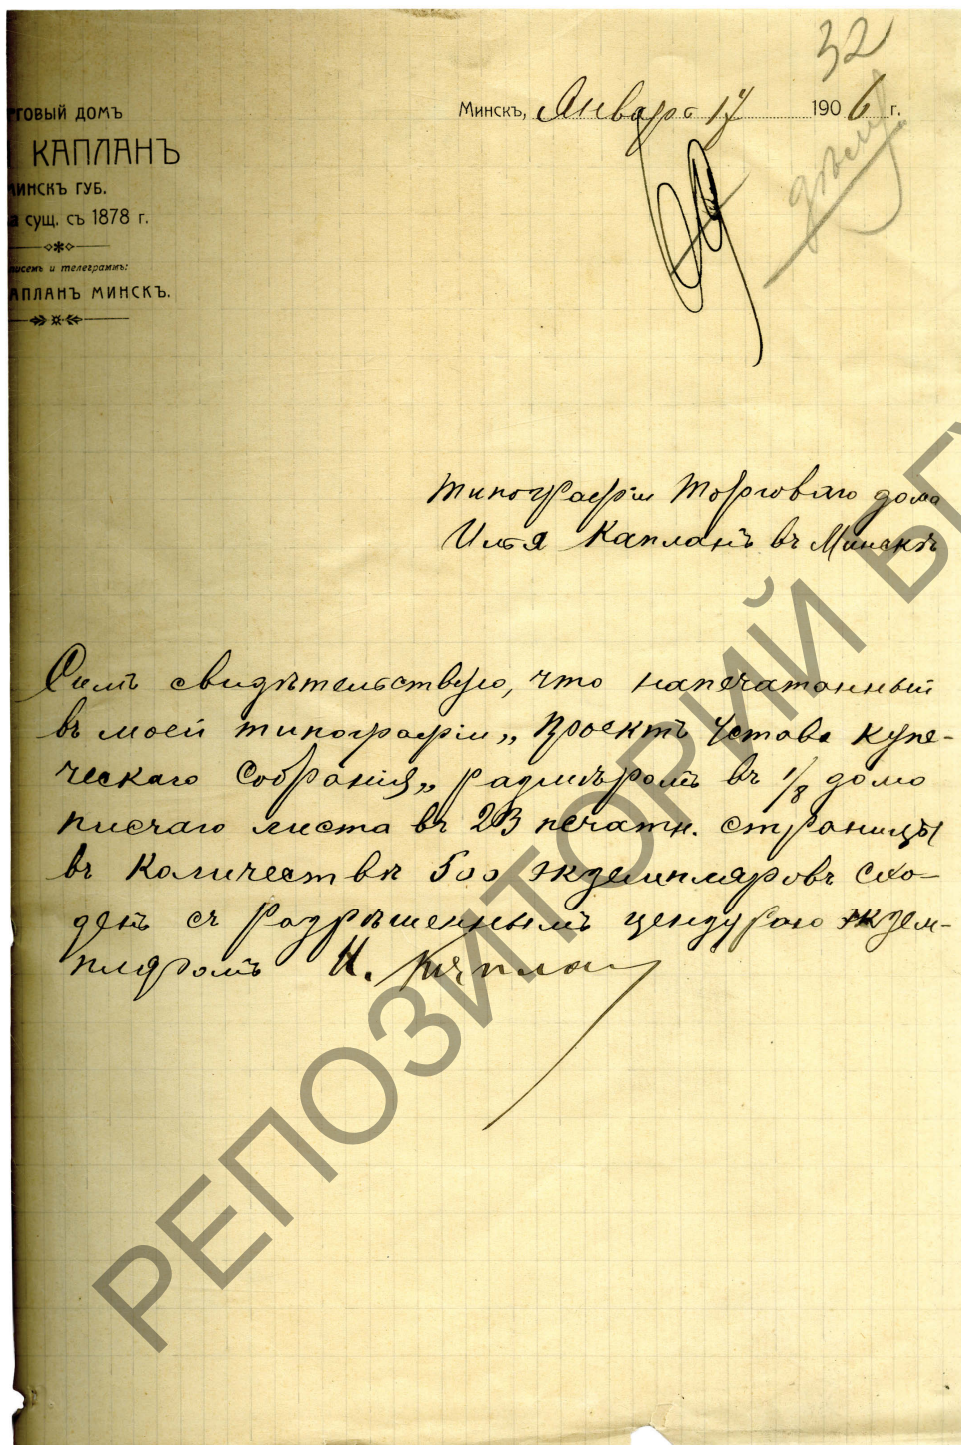 32
рговый домъ
КАПЛАНЪ
минскъ губ.
а сущ. съ 1878 г.
писемъ и телеграммъ:
апланъ минскъ.
Минскъ, Январь 17 1906 г.
дѣлу
Типографіи Торговаго дома
Илья Капланъ въ Минскѣ
Симъ свидѣтельствую, что напечатанный
въ моей типографіи „Проектъ Устава купе-
ческаго Собранія„ размѣромъ въ 1/8 долю
писчаго листа въ 23 печатн. страницы
въ количествѣ 500 экземпляровъ схо-
денъ съ разрѣшеннымъ цензурою экзем-
пляромъ И. Каплан
РЕПОЗИТОРИЙ БГУ